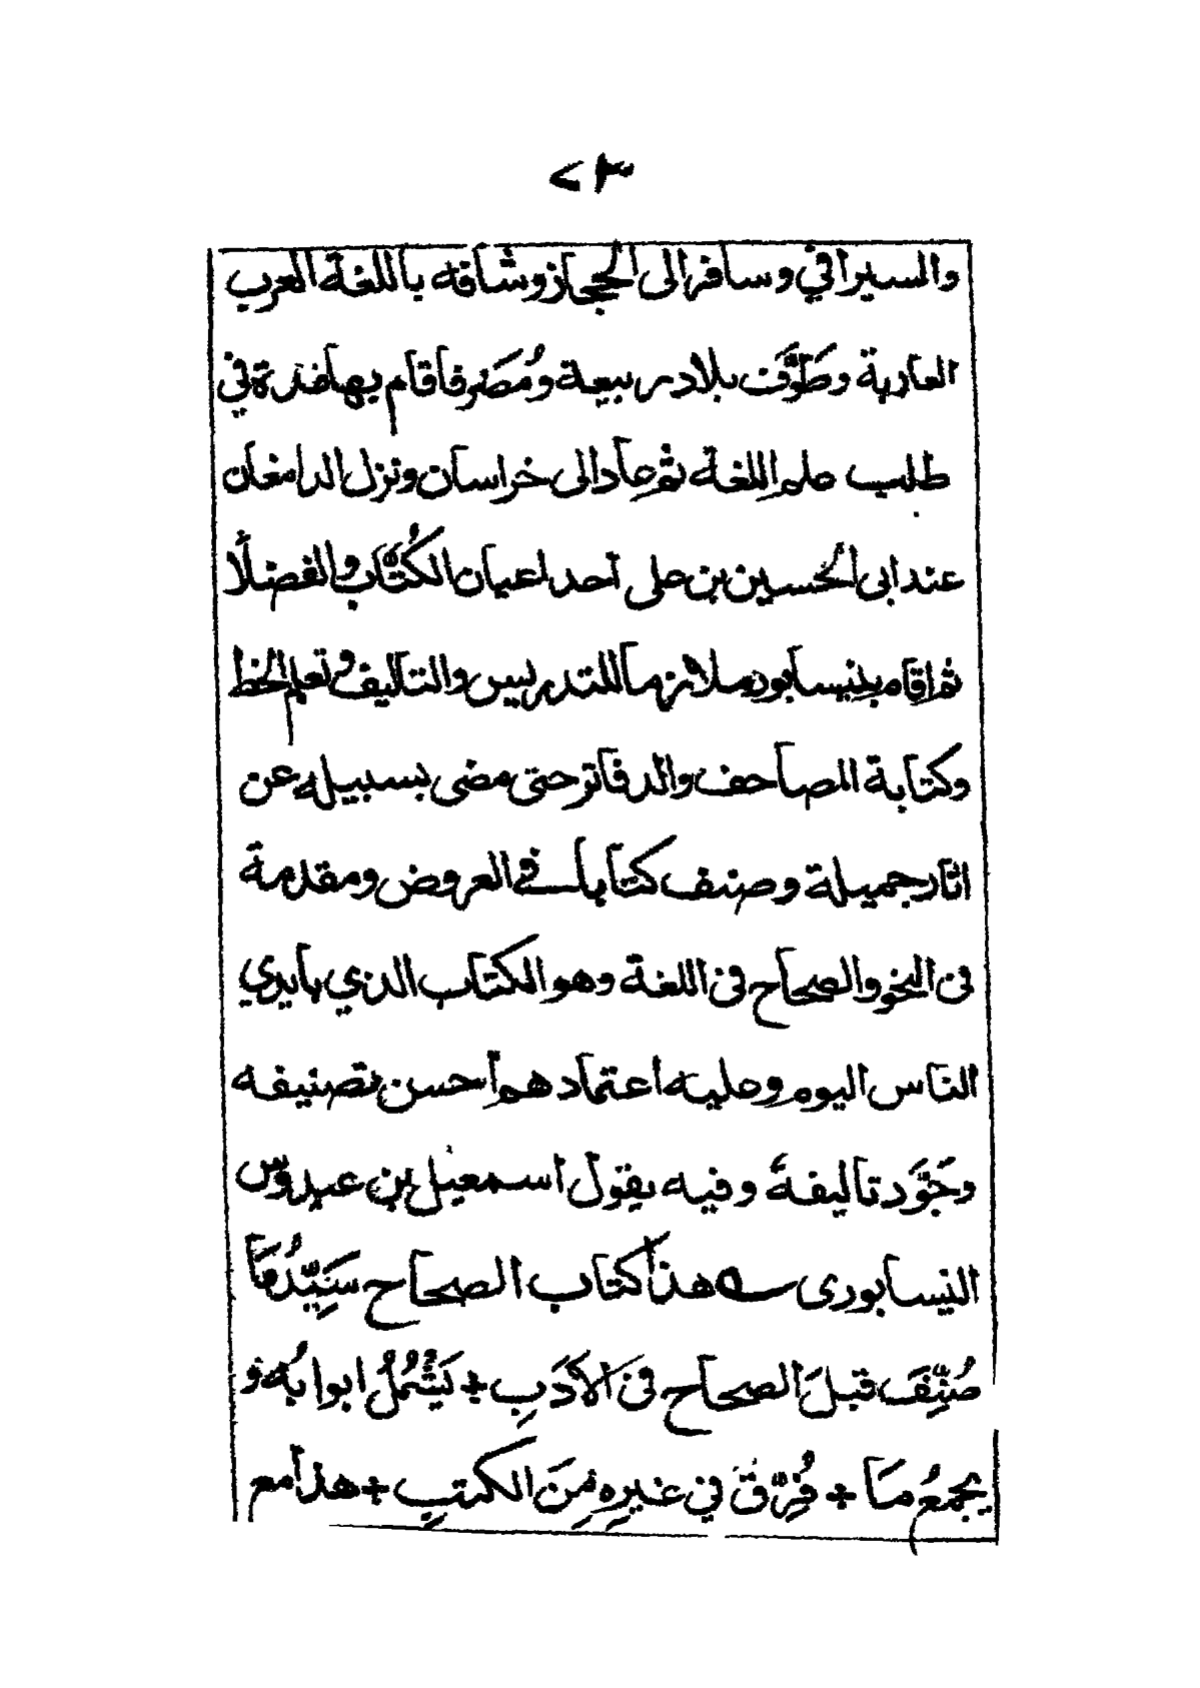 ٢٣
والسيرافي وسافر الى الحجاز وشافه باللغة العرب
العاربة وطَوَّف بلاد ربيعة ومُضَر فاقام بها مدة في
طلب علم اللغة ثم عاد الى خراسان ونزل الدامغان
عند ابى الحسين بن على احد اعيان الكُتَّاب والفضلا
ثم اقام بنيسابور ملازما للتدريس والتاليف وتعلم الخط
وكتابة المصاحف والدفاتر حتى مضى بسبيله عن
اثار جميلة وصنف كتابا في العروض ومقدمة
فى النحو والصحاح فى اللغة وهو الكتاب الذي بايدي
الناس اليوم وعليه اعتمادهم احسن تصنيفه
وجَوَّد تاليفه وفيه يقول اسمعيل بن عبدوس
النيسابورى هذا كتاب الصحاح سَيِّدُ مَا
صُنِّفَ قبلَ الصحاح فى الأدَبِ + يَشْمُلُ ابوابُه و
يجمعُ مَا + فُرِّقَ في غيرِه مِنَ الكتبِ + هذا مع